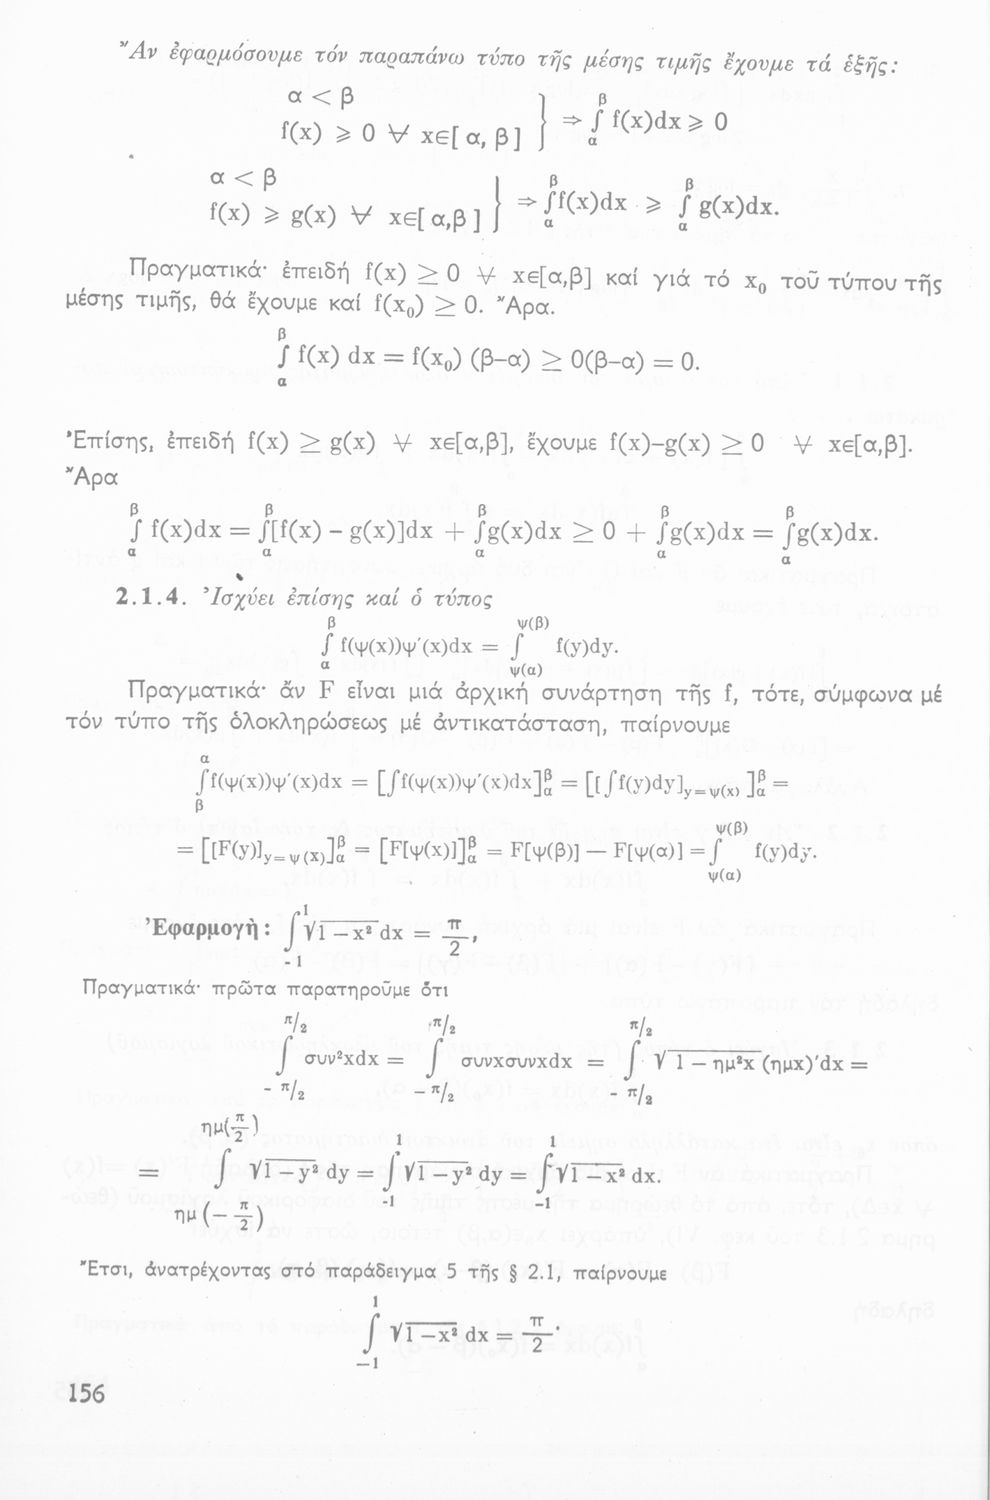 Ἄν ἐφαρμόσουμε τόν παραπάνω τύπο τῆς μέσης τιμῆς ἔχουμε τά ἑξῆς:
α < β
f(x) ⩾ 0 ∀ x∈[α, β] } ⇒ ∫_α^β f(x)dx ⩾ 0
α < β
f(x) ⩾ g(x) ∀ x∈[α,β] } ⇒ ∫_α^β f(x)dx ⩾ ∫_α^β g(x)dx.
Πραγματικά· ἐπειδή f(x) ≥ 0 ∀ x∈[α,β] καί γιά τό x₀ τοῦ τύπου τῆς
μέσης τιμῆς, θά ἔχουμε καί f(x₀) ≥ 0. Ἄρα.
∫_α^β f(x) dx = f(x₀) (β–α) ≥ 0(β–α) = 0.
Ἐπίσης, ἐπειδή f(x) ≥ g(x) ∀ x∈[α,β], ἔχουμε f(x)–g(x) ≥ 0 ∀ x∈[α,β].
Ἄρα
∫_α^β f(x)dx = ∫_α^β [f(x) – g(x)]dx + ∫_α^β g(x)dx ≥ 0 + ∫_α^β g(x)dx = ∫_α^β g(x)dx.
2.1.4. Ἰσχύει ἐπίσης καί ὁ τύπος
∫_α^β f(ψ(x))ψ′(x)dx = ∫_ψ(α)^ψ(β) f(y)dy.
Πραγματικά· ἄν F εἶναι μιά ἀρχική συνάρτηση τῆς f, τότε, σύμφωνα μέ
τόν τύπο τῆς ὁλοκληρώσεως μέ ἀντικατάσταση, παίρνουμε
∫_β^α f(ψ(x))ψ′(x)dx = [∫f(ψ(x))ψ′(x)dx]_α^β = [[∫f(y)dy]_{y=ψ(x)}]_α^β =
= [[F(y)]_{y=ψ(x)}]_α^β = [F[ψ(x)]]_α^β = F[ψ(β)] — F[ψ(α)] = ∫_ψ(α)^ψ(β) f(y)dy.
Ἐφαρμογὴ: ∫_{-1}^1 √(1 – x²) dx = π/2,
Πραγματικά· πρῶτα παρατηροῦμε ὅτι
∫_{-π/2}^{π/2} συν²xdx = ∫_{-π/2}^{π/2} συνxσυνxdx = ∫_{-π/2}^{π/2} √(1 – ημ²x) (ημx)′dx =
= ∫_{ημ(–π/2)}^{ημ(π/2)} √(1 – y²) dy = ∫_{-1}^1 √(1 – y²) dy = ∫_{-1}^1 √(1 – x²) dx.
Ἔτσι, ἀνατρέχοντας στό παράδειγμα 5 τῆς § 2.1, παίρνουμε
∫_{–1}^1 √(1 – x²) dx = π/2.
156